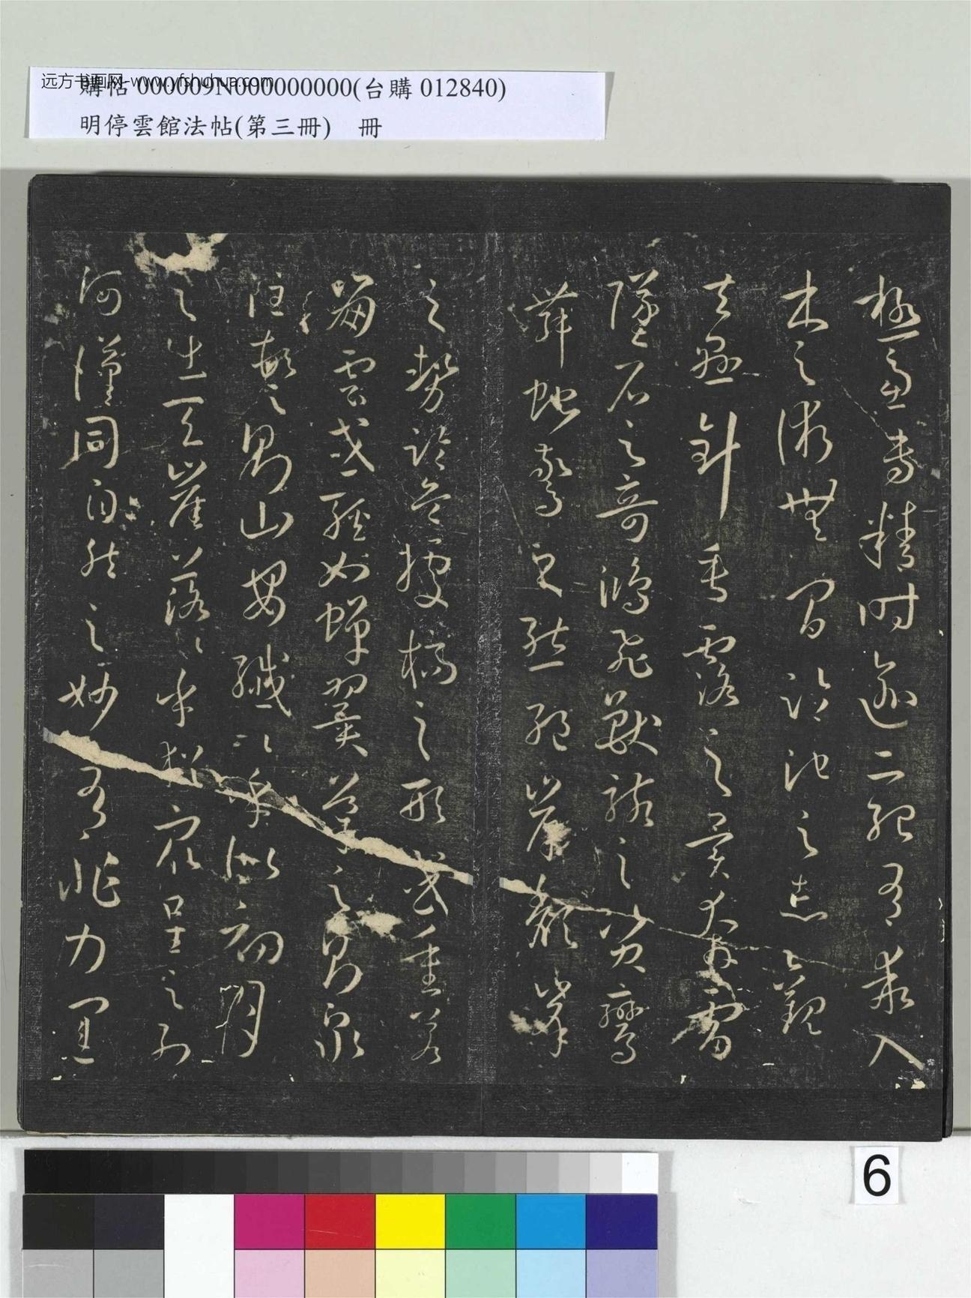 远方书画网-www.yfshuhua.com
購帖 000009N000000000(台購 012840)
明停雲館法帖(第三冊) 冊
極慮專精時逾二紀有乖入
木之術無間臨池之志觀
夫懸針垂露之異奔雷
墜石之奇鴻飛獸駭之資鸞
舞蛇驚之態絕岸頹峰
之勢臨危據槁之形或重若
崩雲或輕如蟬翼導之則泉
注頓之則山安纖〻乎似初月
之出天崖落〻乎猶眾星之列
河漢同自然之妙有非力運
6